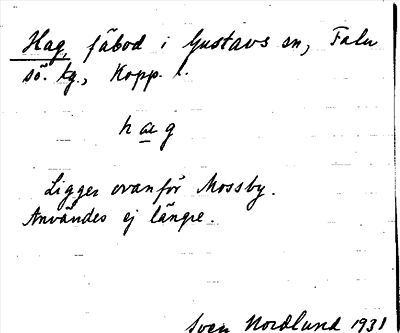 Hag, fäbod i Gustavs sn, Falu
sö. tg., Kopp. l.
hag
Ligger ovanför Mossby.
Användes ej längre.
Sven Nordlund 1931